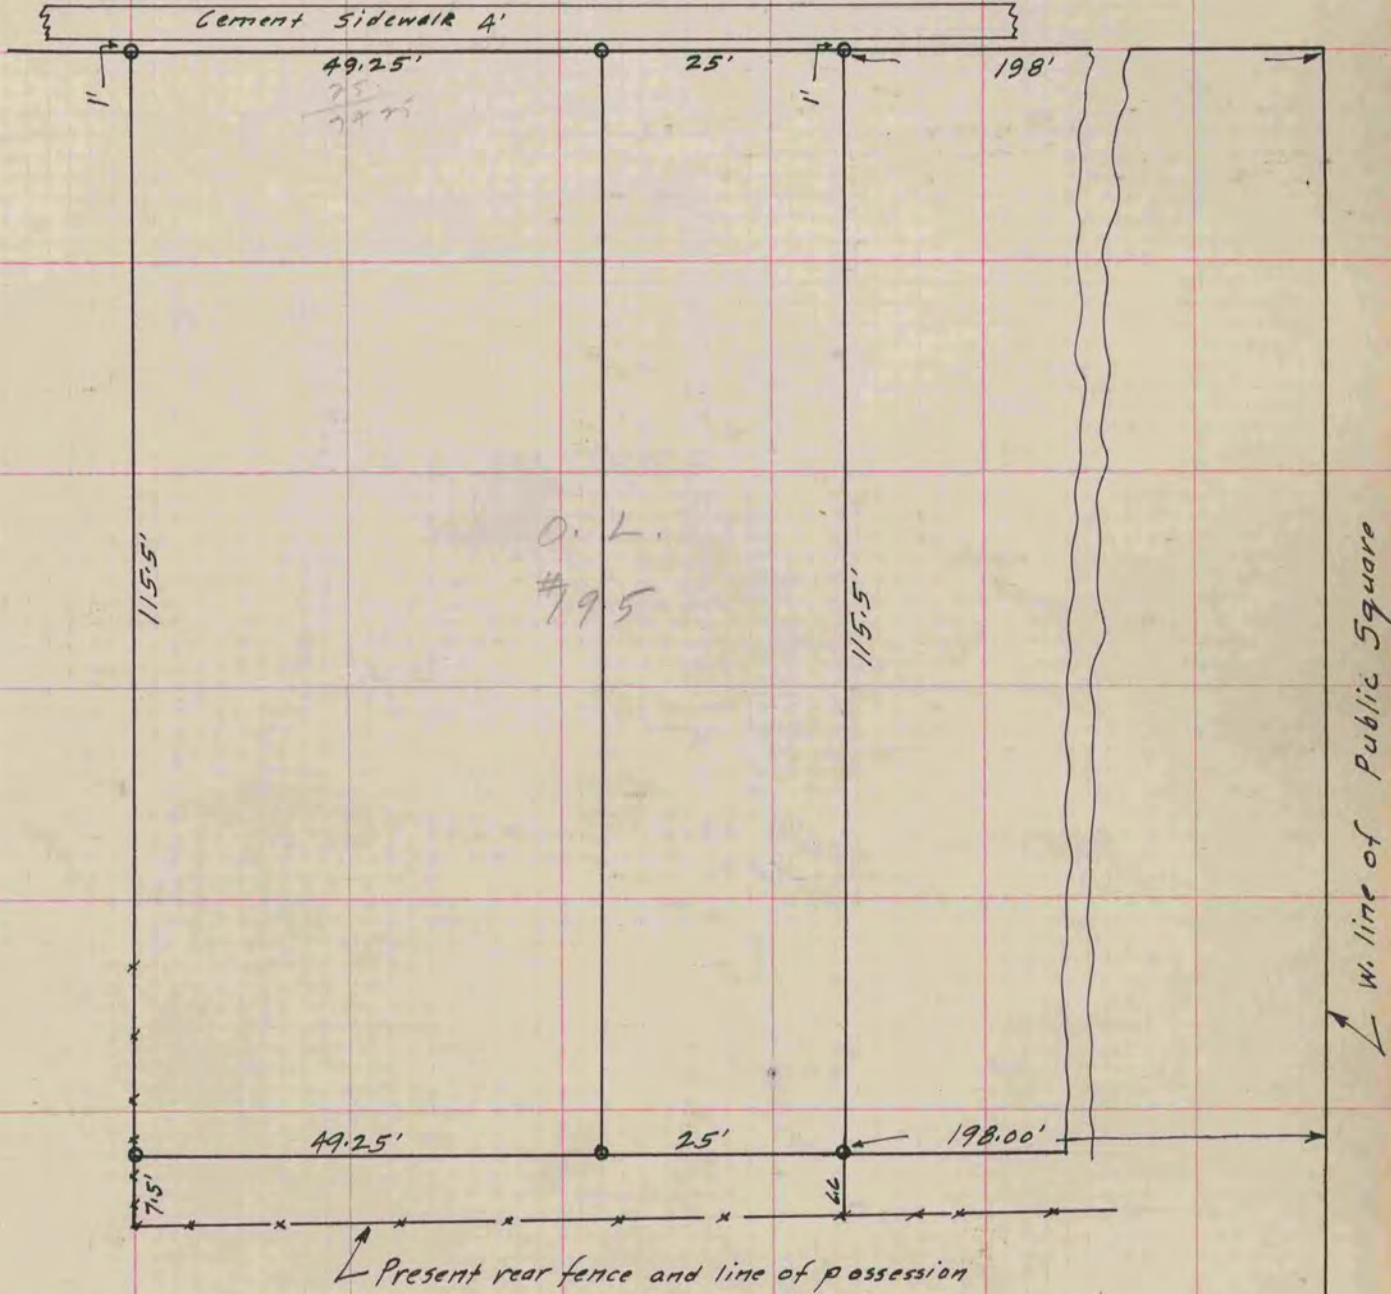 Cement Sidewalk 4'
1'
49.25'
25'
1'
198'
O. L.
#195
115.5'
115.5'
W. line of Public Square
49.25'
25'
198.00'
7.5'
Present rear fence and line of possession